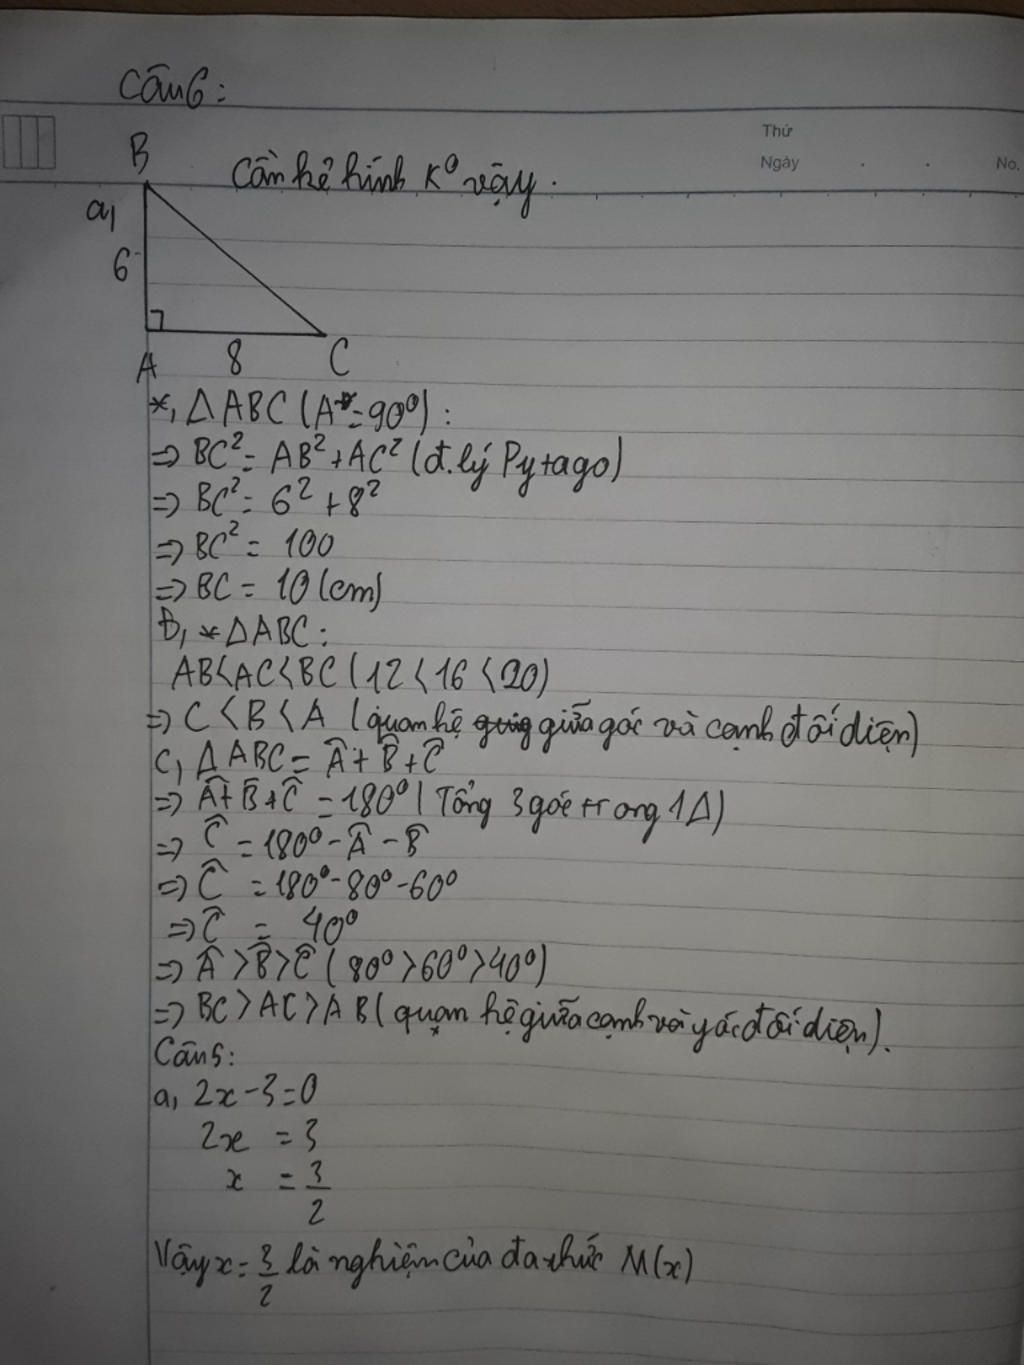 Câu 6:
Thứ
Ngày
No.
B
Cần kẻ hình k° vậy.
a,
6
A 8 C
*, Δ ABC (A = 90°):
=> BC² = AB² + AC² (đ.lý Pytago)
=> BC² = 6² + 8²
=> BC² = 100
=> BC = 10 (cm)
b, * Δ ABC:
AB < AC < BC (12 < 16 < 20)
=> C < B < A (quan hệ giữa góc và cạnh đối diện)
C, Δ ABC = Â + B̂ + Ĉ
=> Â + B̂ + Ĉ = 180° (Tổng 3 góc trong 1Δ)
=> Ĉ = 180° - Â - B̂
=> Ĉ = 180° - 80° - 60°
=> Ĉ = 40°
=> Â > B̂ > Ĉ (80° > 60° > 40°)
=> BC > AC > AB (quan hệ giữa cạnh và góc đối diện).
Câu 5:
a, 2x - 3 = 0
2x = 3
x = 3/2
Vậy x = 3/2 là nghiệm của đa thức M(x)